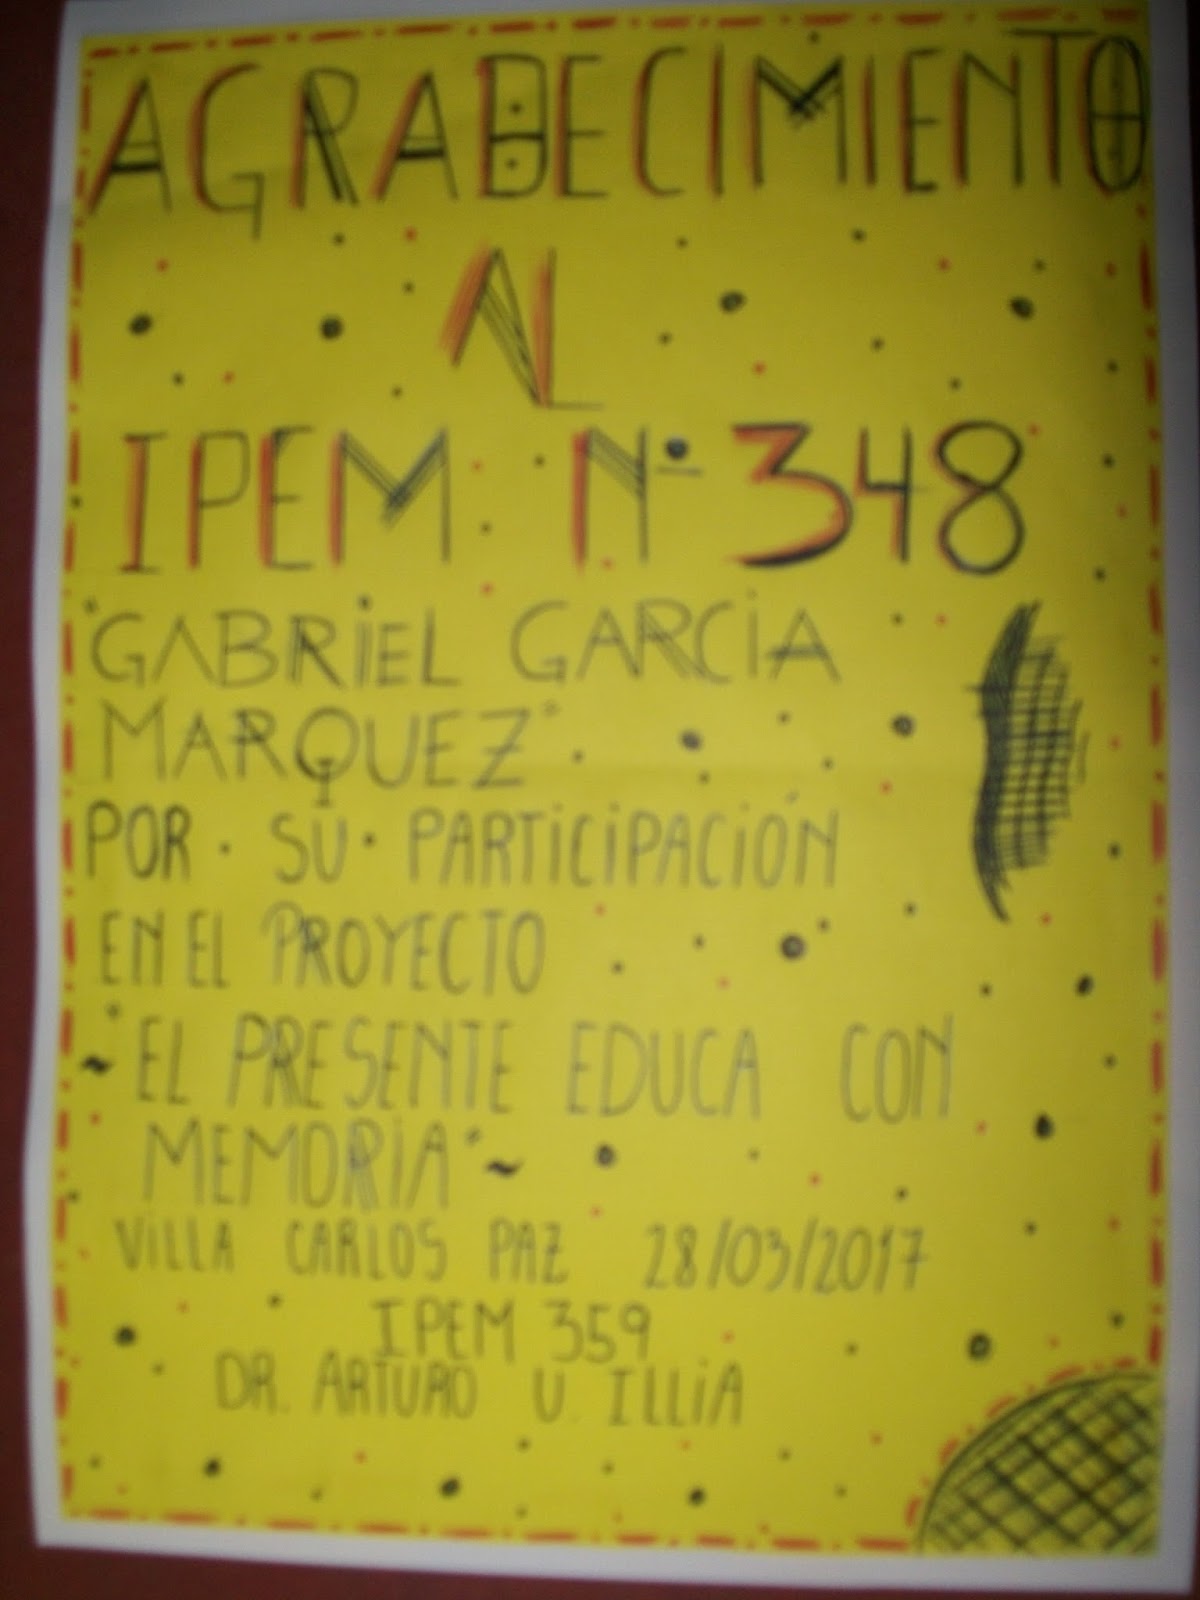 AGRADECIMIENTO
AL
IPEM N° 348
"GABRIEL GARCIA
MARQUEZ"
POR SU PARTICIPACIÓN
EN EL PROYECTO
"EL PRESENTE EDUCA CON
MEMORIA"
VILLA CARLOS PAZ 28/03/2017
IPEM 359
DR. ARTURO U. ILLIA